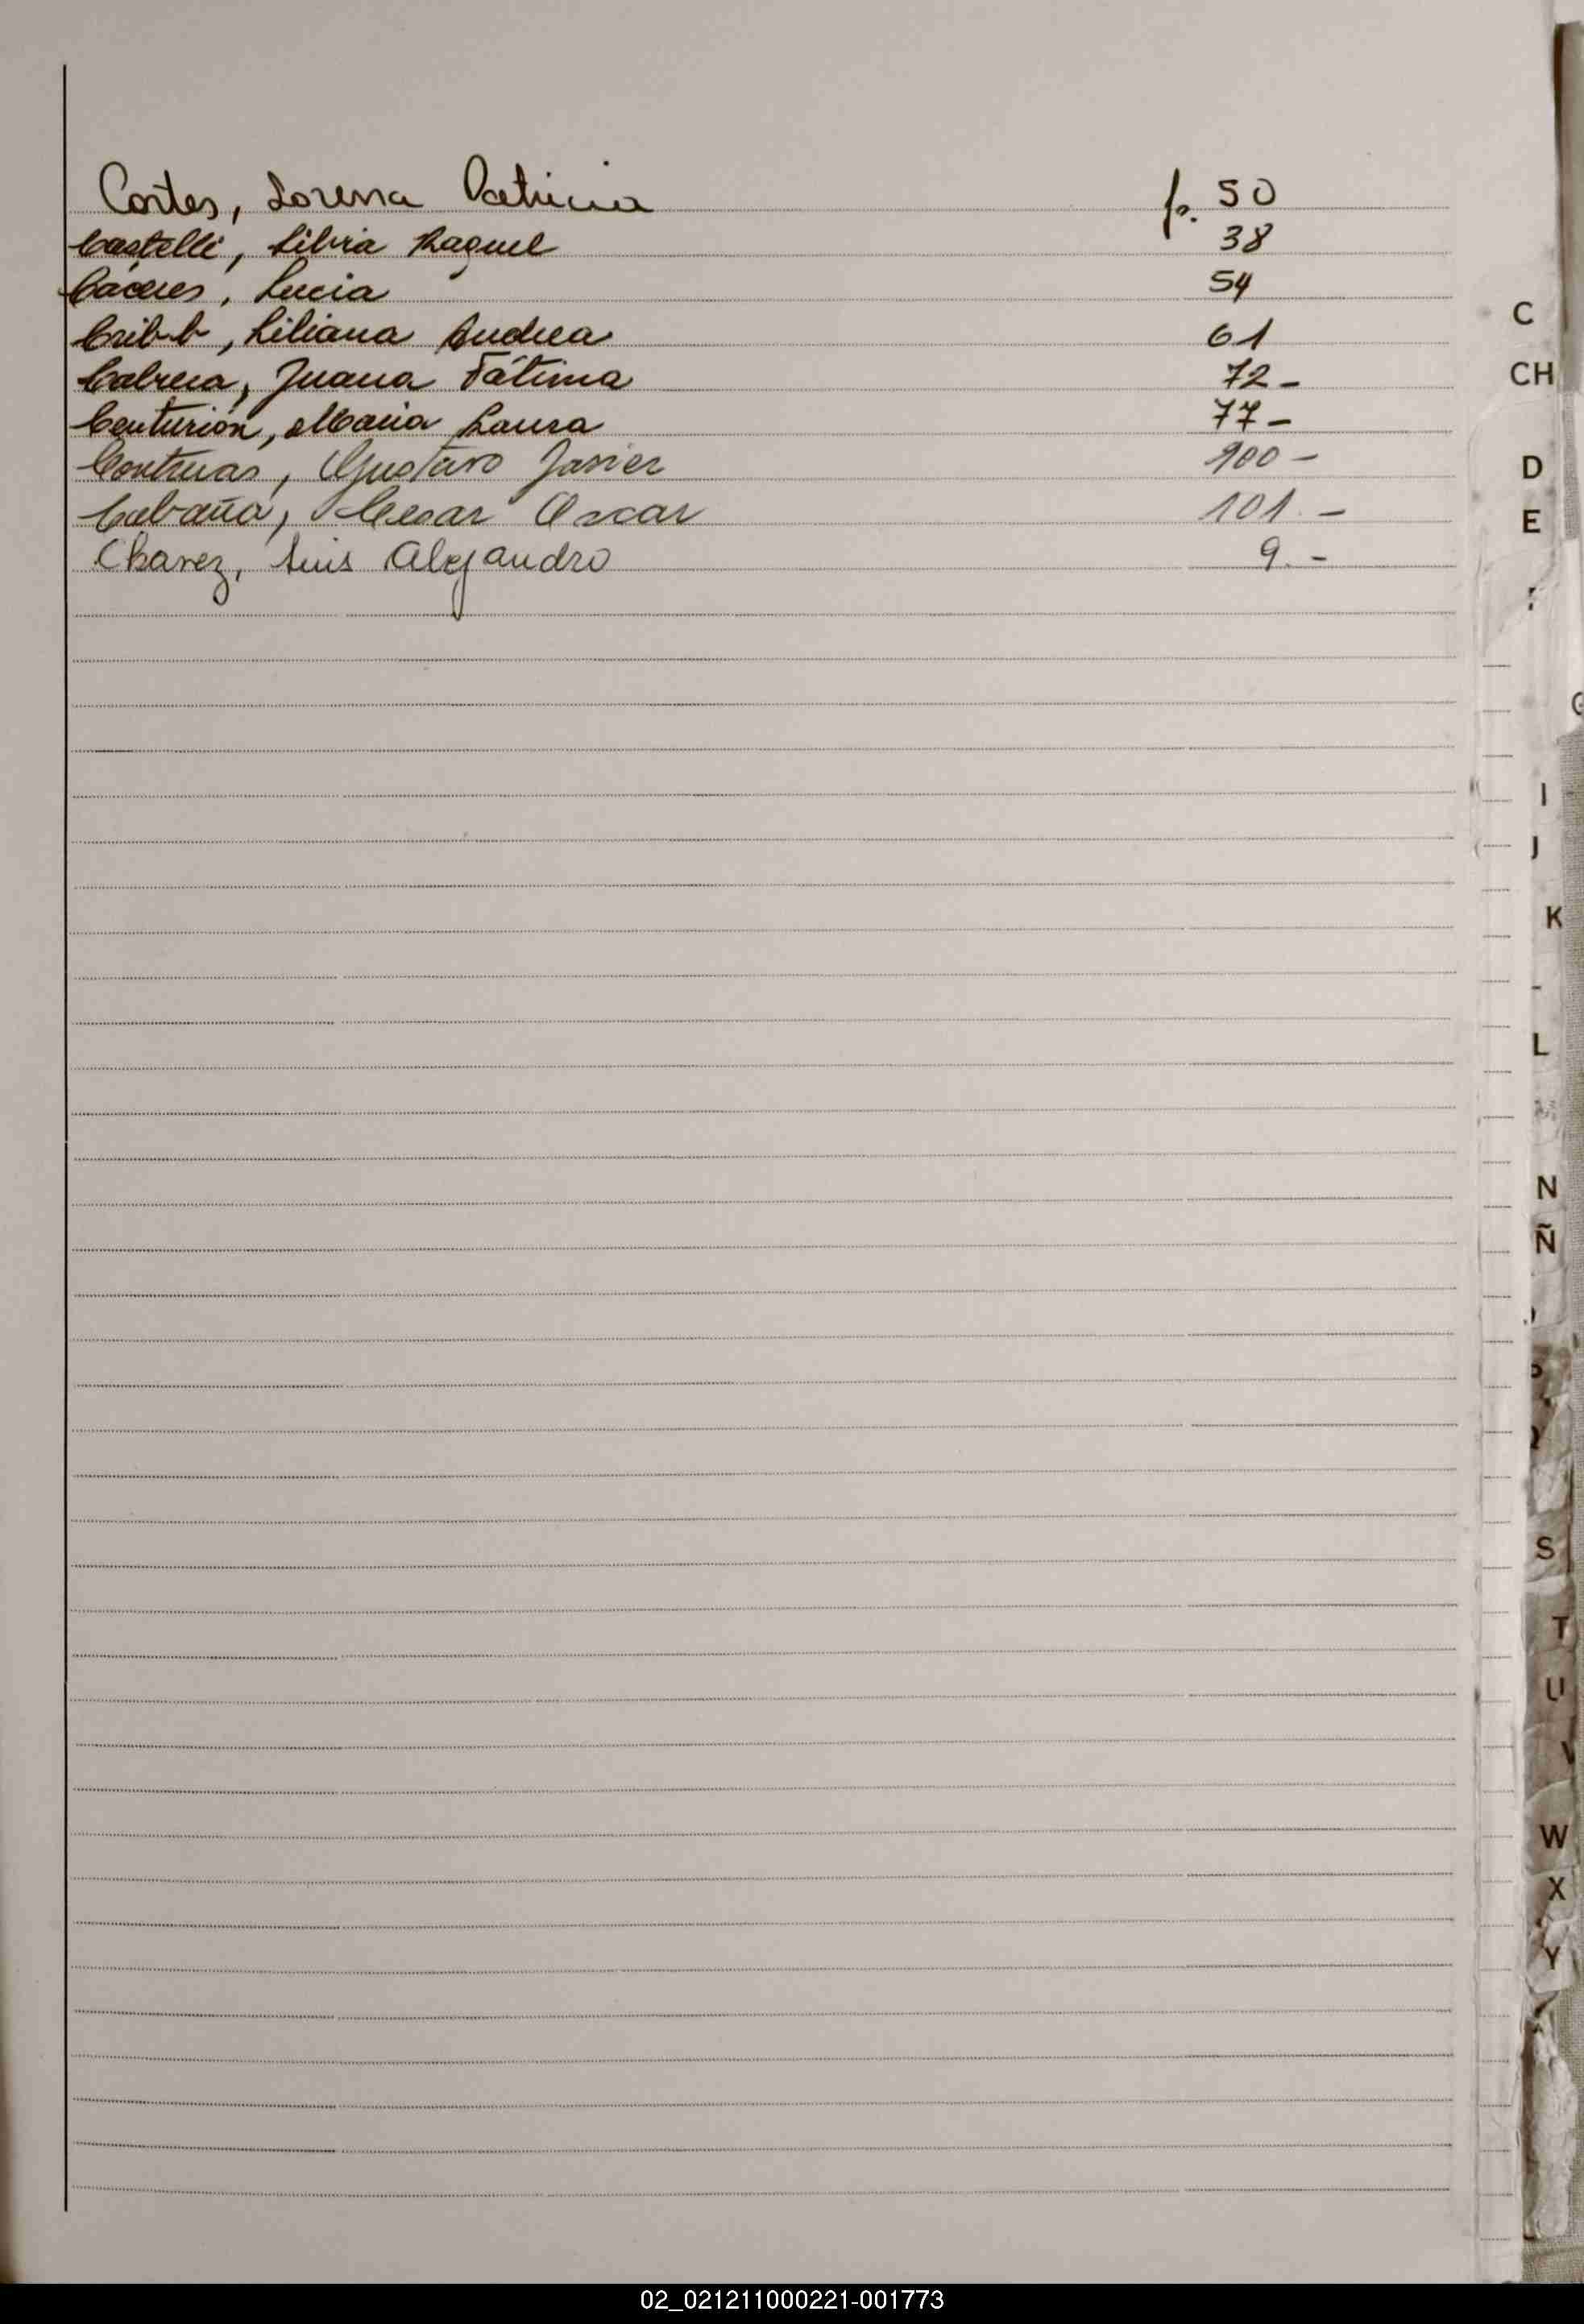 Cortes, Lorena Patricia fº. 50
Castelli, Silvia Raquel 38
Cáceres, Lucia 54
Cribb, Liliana Andrea 61
Cabrera, Juana Fátima 72-
Centurión, Maria Laura 77-
Contreras, Gustavo Javier 100-
Cabaña, Cesar Oscar 101.-
Chavez, Luis Alejandro 9.-
C
CH
D
E
G
I
J
K
L
N
Ñ
S
T
U
V
W
X
Y
02_021211000221-001773